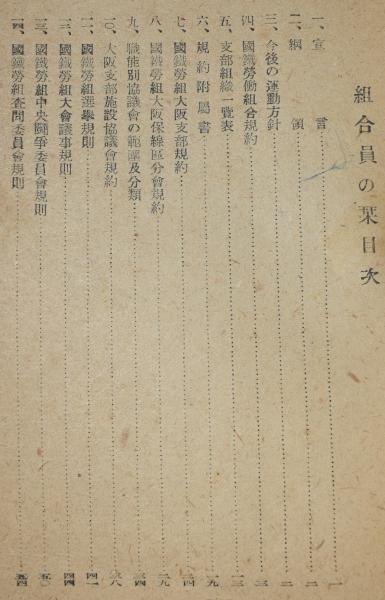 組合員の栞目次
一、宣言……一
二、綱領……二
三、今後の運動方針……二
四、國鐵勞働組合規約……三
五、支部組織一覽表……一三
六、規約附屬書……一九
七、國鐵勞組大阪支部規約……二四
八、國鐵勞組大阪保線區分會規約……二九
九、職能別協議會の範圍及分類……三四
一〇、大阪支部施設協議會規約……三八
一一、國鐵勞組選擧規則……四一
一二、國鐵勞組大會議事規則……四四
一三、國鐵勞組中央鬪爭委員會規則……五〇
一四、國鐵勞組査問委員會規則……五四